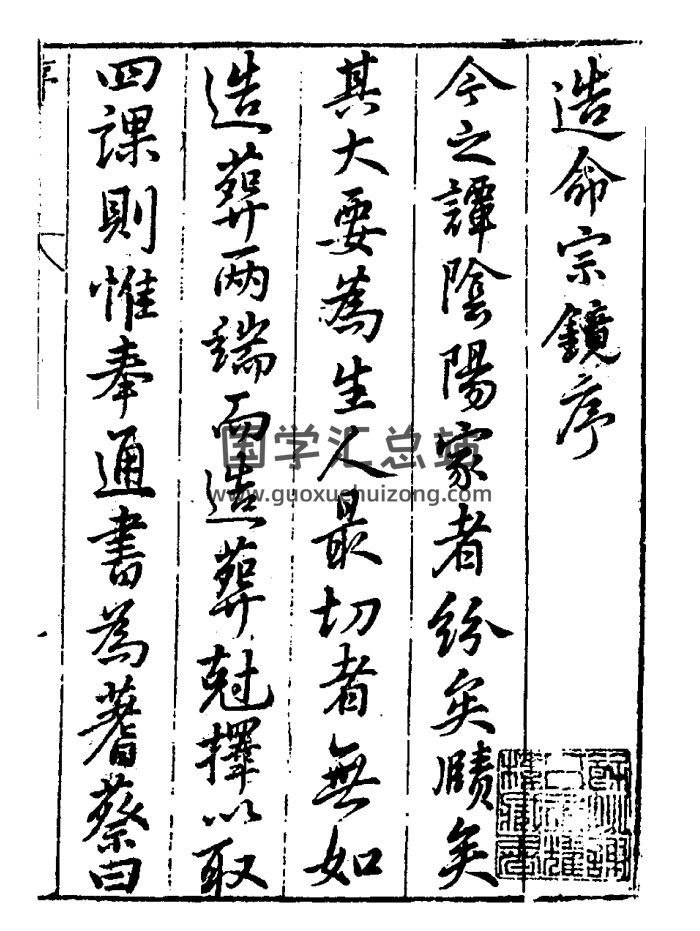 造命宗鏡序
今之譚陰陽家者紛矣賾矣
其大要為生人最切者無如
造葬兩端而造葬尅擇以取
四課則惟奉通書為蓍蔡曰
序
国学汇总站
www.guoxuehuizong.com